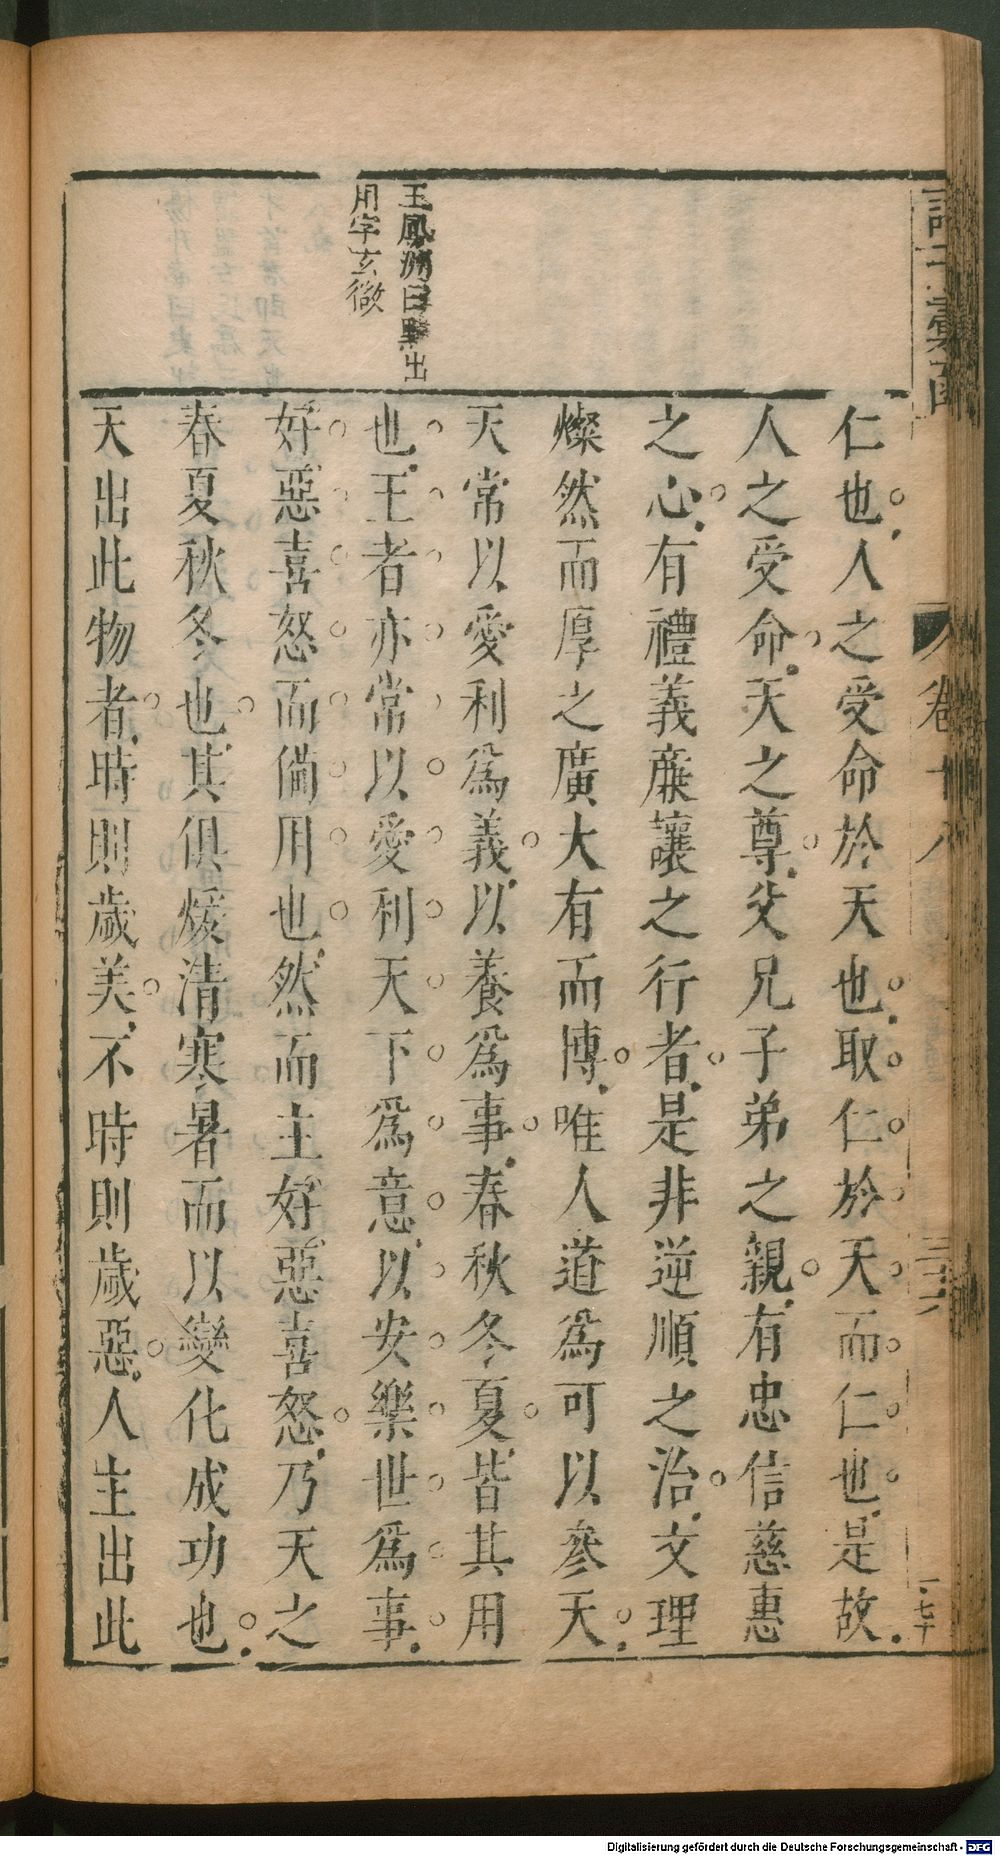 卷十八
仁也人之受命於天也取仁於天而仁也是故
人之受命天之尊父兄子弟之親有忠信慈惠
之心有禮義廉讓之行者是非逆順之治文理
燦然而厚之廣大有而博唯人道為可以參天
天常以愛利為義以養為事春秋冬夏皆其用
也王者亦常以愛利天下為意以安樂世為事
好惡喜怒而俻用也然而主好惡喜怒乃天之
春夏秋冬也其俱煖清寒暑而以變化成功也
天出此物者時則歲美不時則歲惡人主出此
王鳳洲曰點出
用字玄微
Digitalisierung gefördert durch die Deutsche Forschungsgemeinschaft - DFG